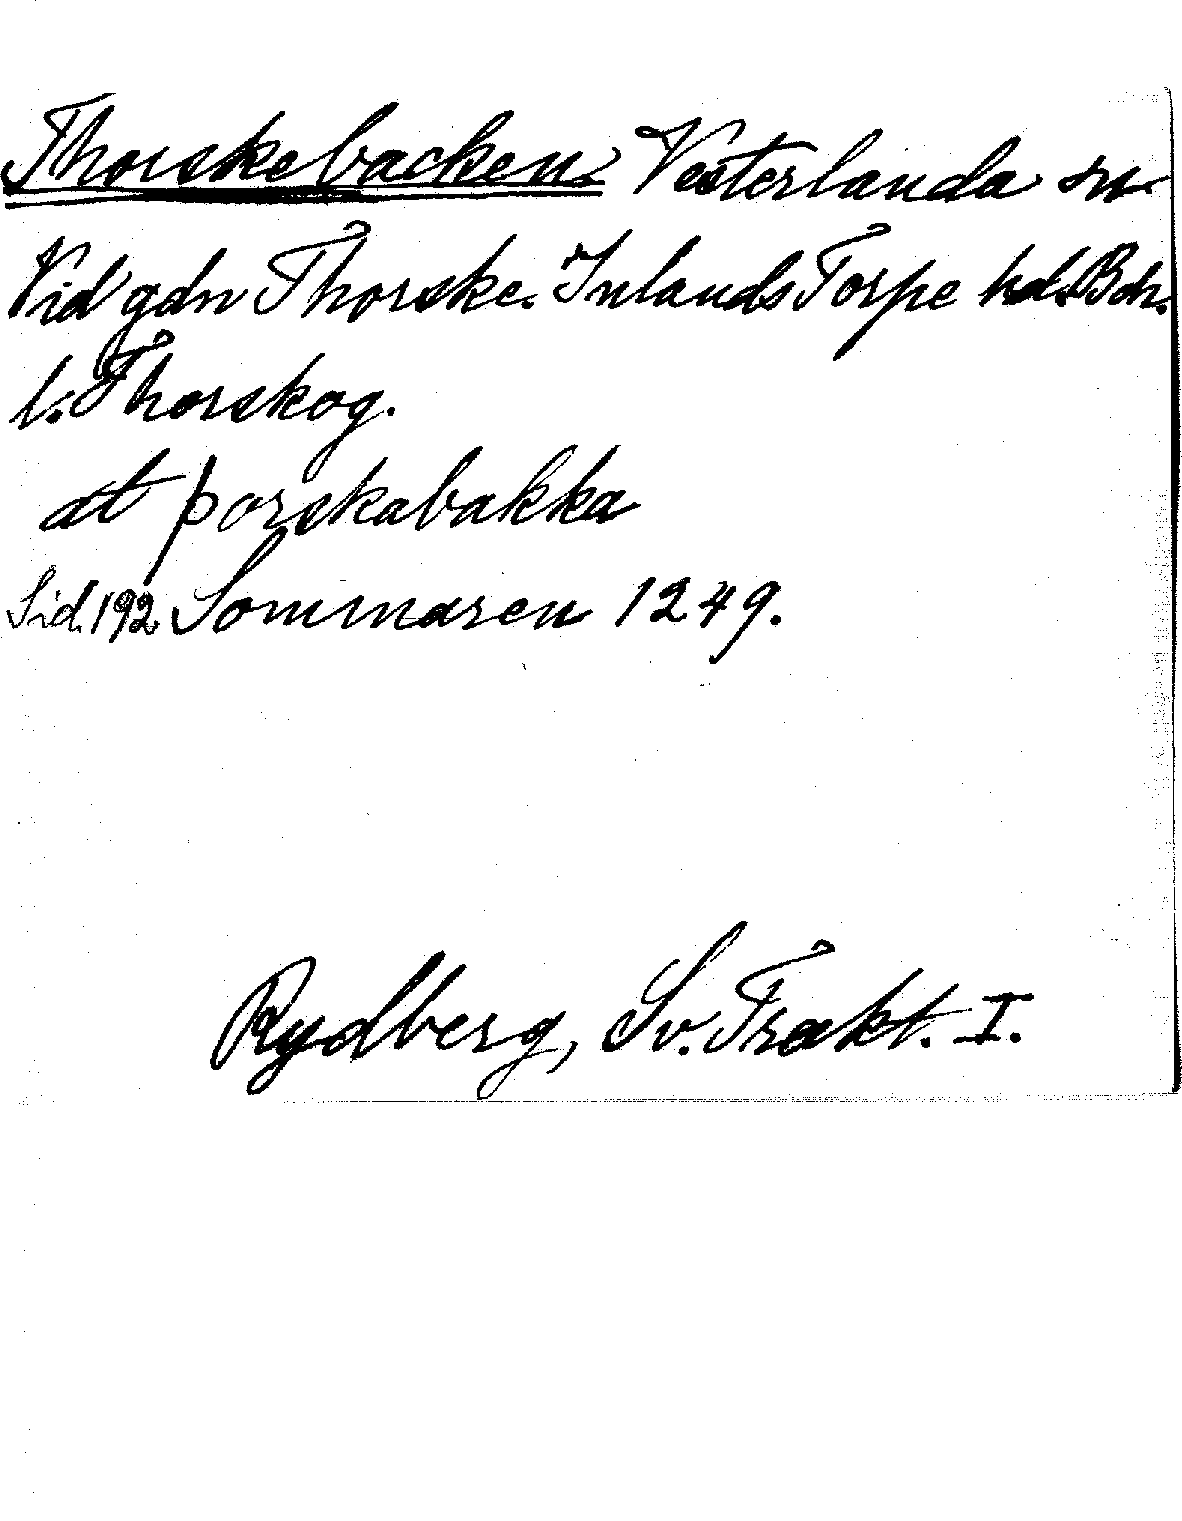 Thorskebacken. Vesterlanda sn.
Vid gdn Thorske. Inlands Torpe hd. Boh.
l. Thorskog.
at þorskabakka
Sid. 192 Sommaren 1249.
Rydberg, Sv. Trakt. I.